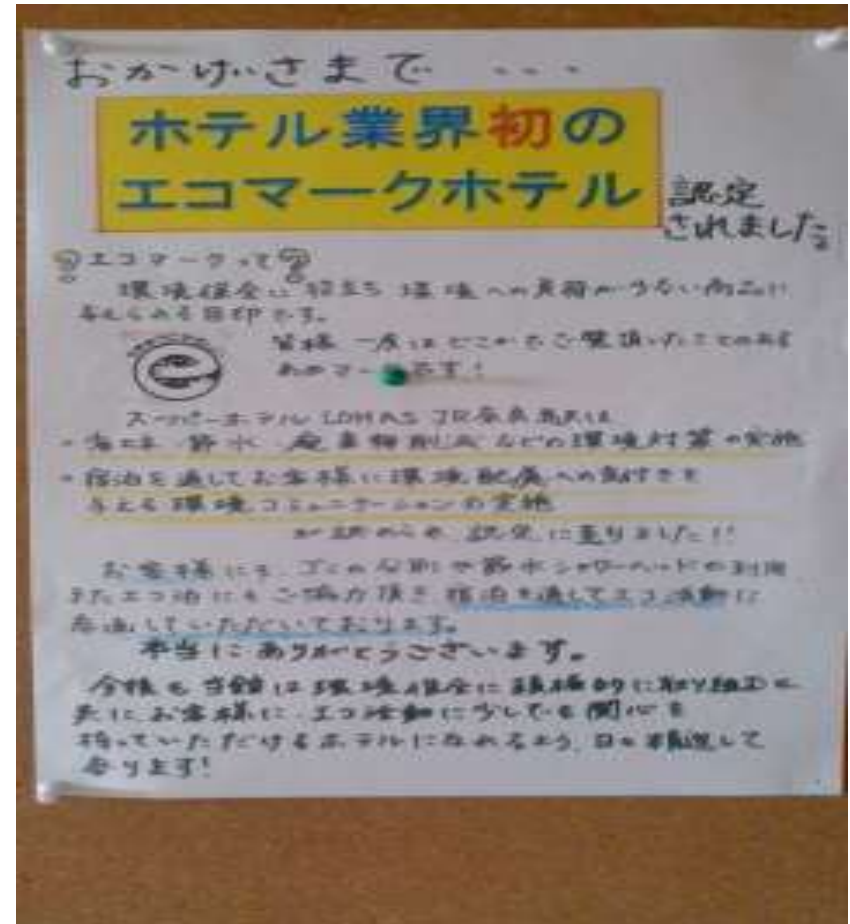 おかげさまで ・・・
ホテル業界初の
エコマークホテル 認定
されました
エコマークって?
環境保全に役立ち 環境への負荷が少ない商品に
与えられる目印です。
皆様 一度はどこかでご覧頂いたことのある
あのマークです!
スーパーホテル LOHAS JR奈良駅は
・省エネ 節水 廃棄物削減 などの環境対策の実施
・宿泊を通してお客様に環境配慮への気付きを
与える環境コミュニケーションの実施
が認められ 認定に至りました!!
お客様にも、ゴミの分別や節水シャワーヘッドの利用
またエコ泊にもご協力頂き 宿泊を通してエコ活動に
参加していただいております。
本当にありがとうございます。
今後も当館は環境保全に積極的に取り組むと
共にお客様に、エコ活動に少しでも関心を
持っていただけるホテルになれるよう、日々精進して
参ります!